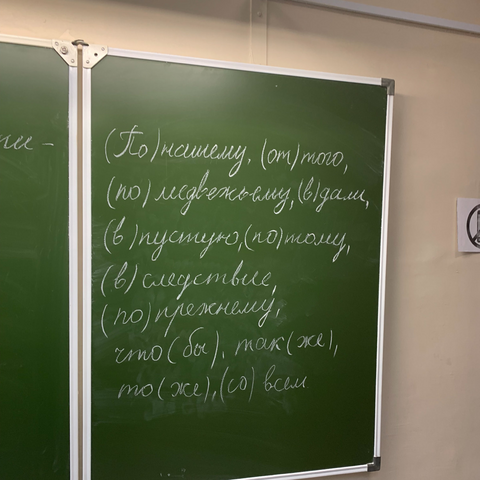 (По)нашему, (от)того,
(по) медвежьему, (в)дали,
(в)пустую, (по)тому,
(в) следствие,
(по)прежнему,
что(бы), так(же),
то(же), (со) всем